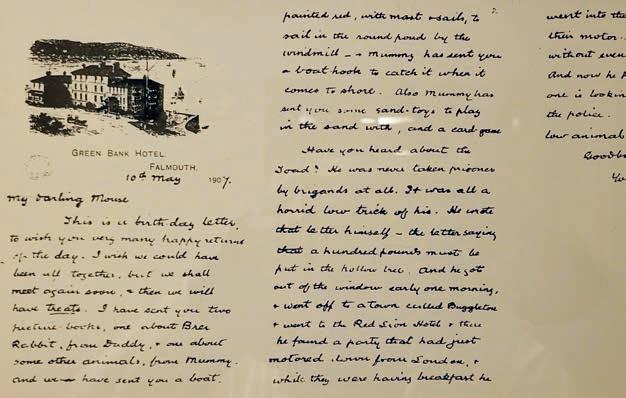 GREEN BANK HOTEL.
FALMOUTH.
10th May 1907.
My Darling Mouse
This is a birth-day letter,
to wish you very many happy returns
of the day. I wish we could have
been all together, but we shall
meet again soon, & then we will
have treats. I have sent you two
picture-books, one about Brer
Rabbit, from Daddy, & one about
some other animals, from Mummy.
And we have sent you a boat,
2.
painted red, with mast & sails, to
sail in the round pond by the
windmill – & Mummy has sent you
a boat hook to catch it when it
comes to shore. Also Mummy has
sent you some sand-toys to play
in the sand with, and a card game
Have you heard about the
Toad? He was never taken prisoner
by brigands at all. It was all a
horrid low trick of his. He wrote
that letter himself – the letter saying
that a hundred pounds must be
put in the hollow tree. And he got
out of the window early one morning,
& went off to a town called Buggleton
& went to the Red Lion Hotel & there
he found a party that had just
motored down from London, &
while they were having breakfast he
went into the
their motor-
without even
And now he
one is lookin
the police.
low animal
Goodb